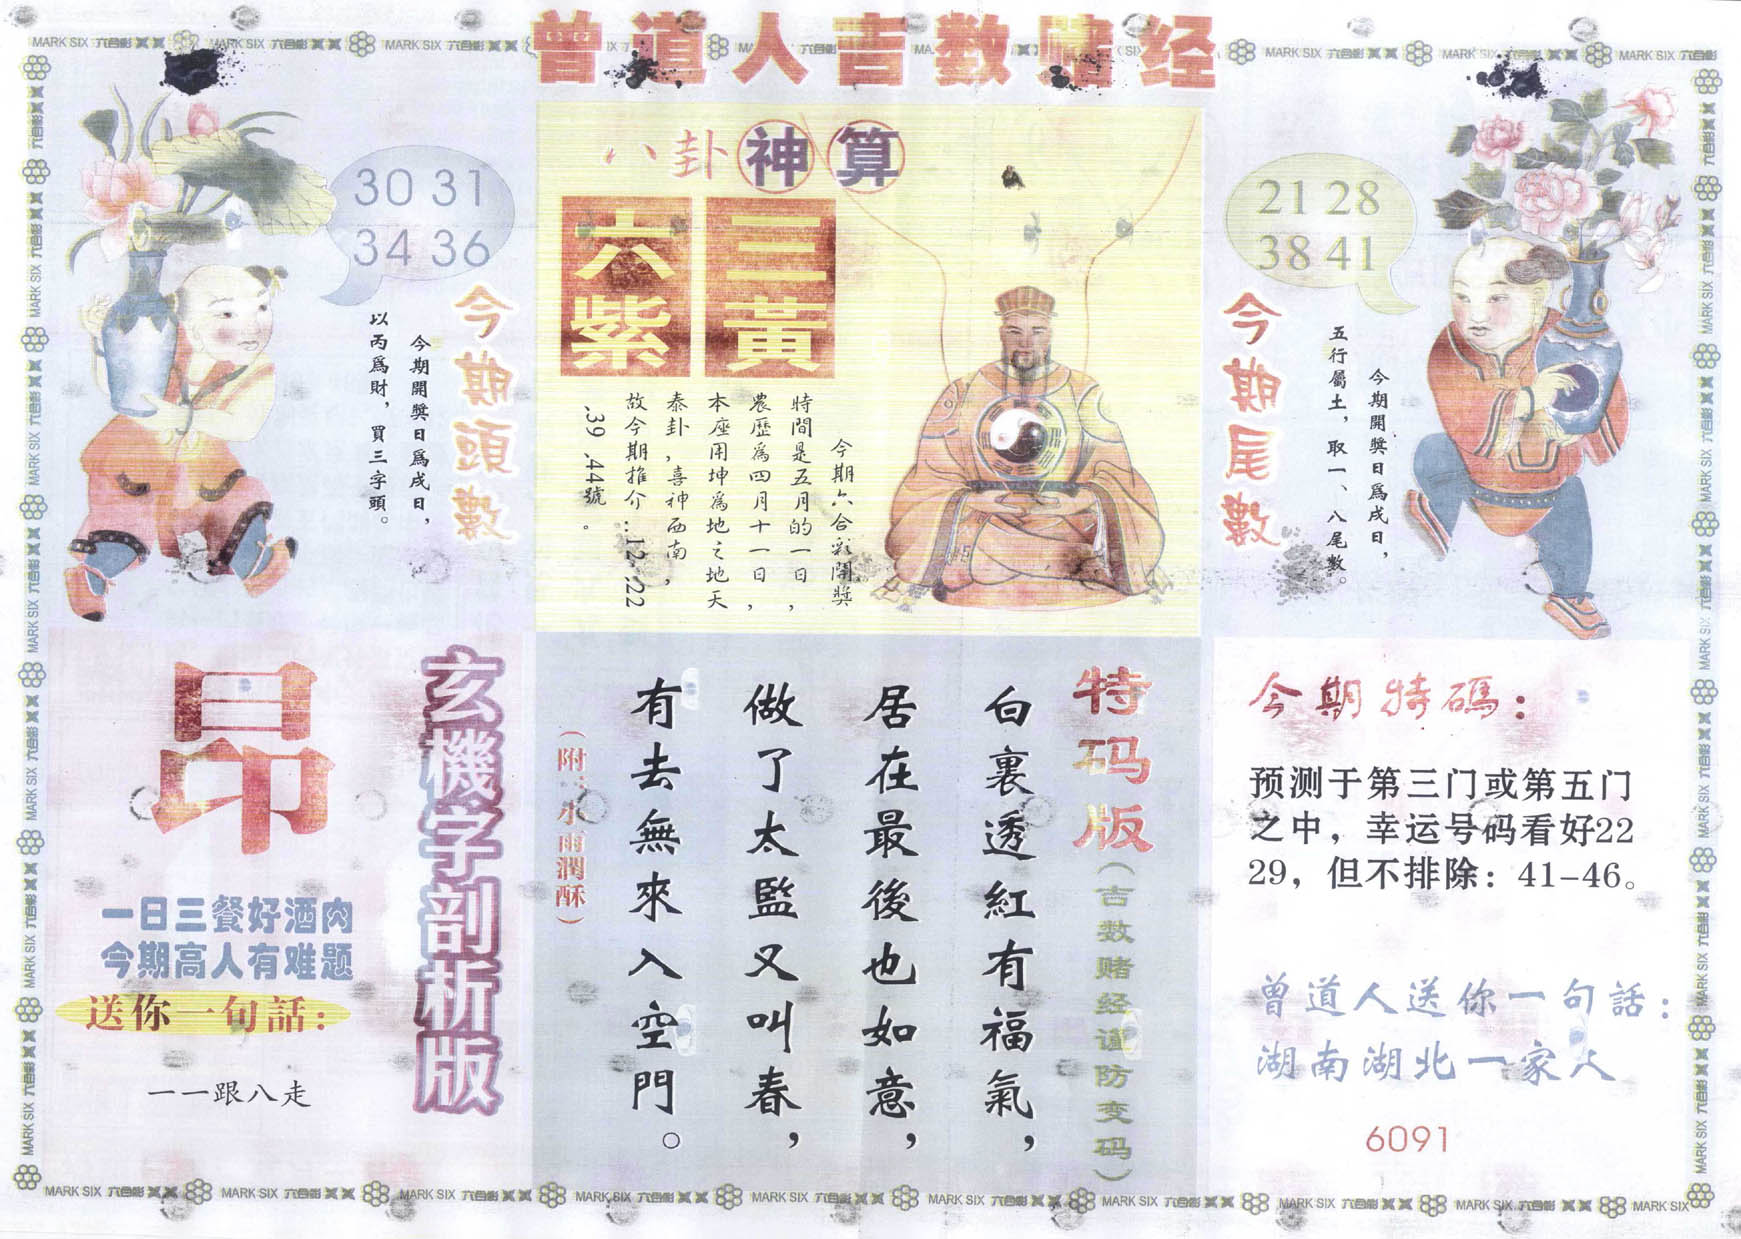 曾道人吉数赌经
MARK SIX 六合彩
30 31
34 36
今期頭數
今期開獎日爲戌日，
以丙爲財，買三字頭。
八卦神算
三黃
六紫
今期六合彩開獎
時間是五月的一日，
農歷爲四月十一日，
本座用坤爲地之地天
泰卦，喜神西南，
故今期推介：12.22
.39.44號。
21 28
38 41
今期尾數
今期開獎日爲戌日，
五行屬土，取一、八尾數。
玄機字剖析版
昂
一日三餐好酒肉
今期高人有难题
送你一句話：
一一跟八走
特码版
（吉数赌经谨防变码）
白裏透紅有福氣，
居在最後也如意，
做了太監又叫春，
有去無來入空門。
（附：水雨潤酥）
今期特碼：
预测于第三门或第五门
之中，幸运号码看好22
29，但不排除：41-46。
曾道人送你一句話：
湖南湖北一家人
6091